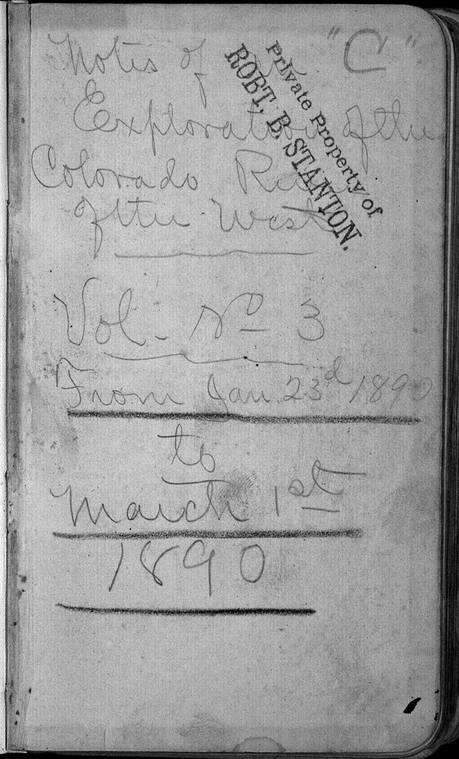 Notes of the "C"
Exploration of the
Colorado River
of the West
Private Property of
ROBT. B. STANTON.
Vol - No 3
From Jan. 23d 1890
to
March 1st
1890